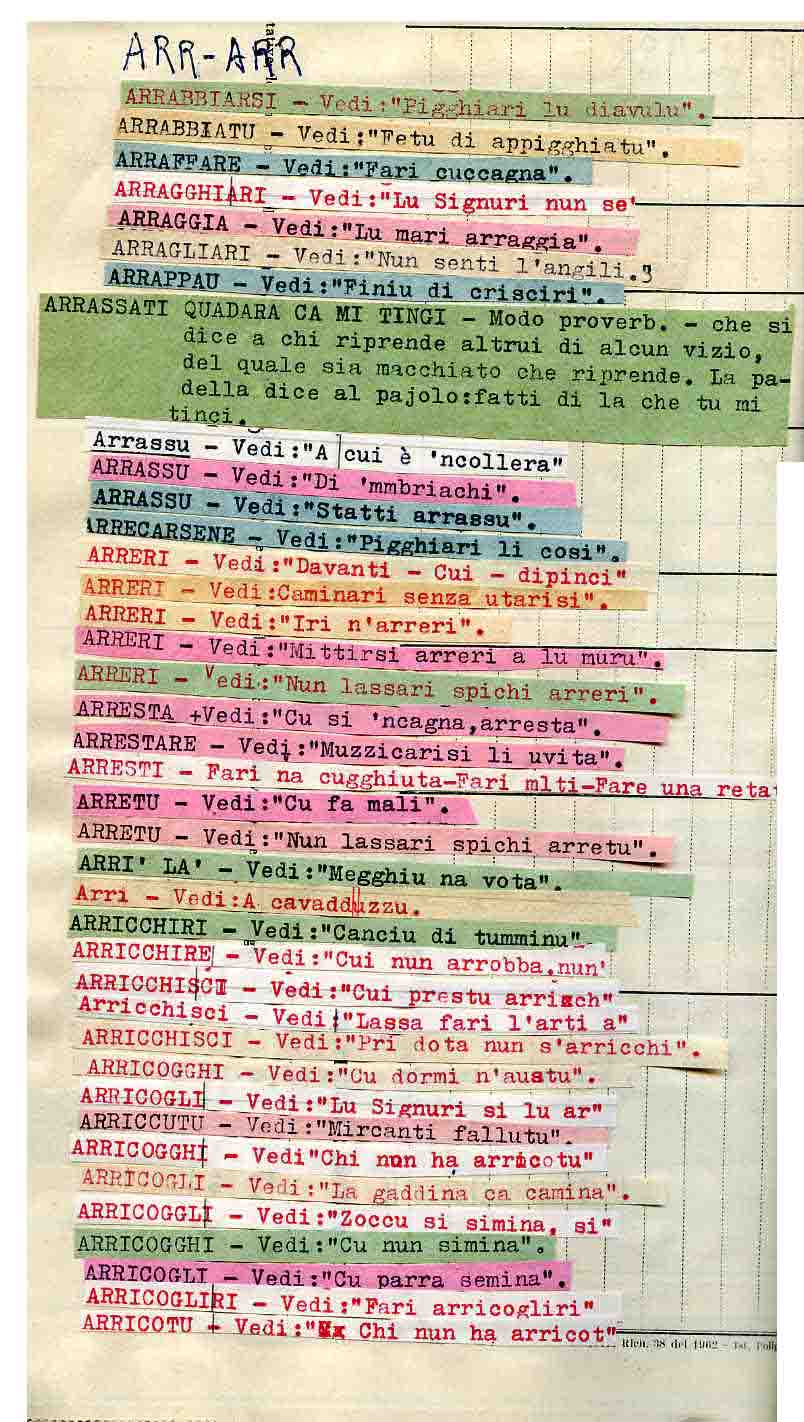 ARR-ARR
ARRABBIARSI - Vedi:"Pigghiari lu diavulu".
ARRABBIATU - Vedi:"Fetu di appigghiatu".
ARRAFFARE - Vedi:"Fari cuccagna".
ARRAGGHIARI - Vedi:"Lu Signuri nun se'
ARRAGGIA - Vedi:"Lu mari arraggia".
ARRAGLIARI - Vedi:"Nun senti l'angili.3
ARRAPPAU - Vedi:"Finiu di crisciri".
ARRASSATI QUADARA CA MI TINGI - Modo proverb. - che si
dice a chi riprende altrui di alcun vizio,
del quale sia macchiato che riprende. La pa-
della dice al pajolo:fatti di la che tu mi
tinci.
Arrassu - Vedi:"A cui è 'ncollera"
ARRASSU - Vedi:"Di 'mmbriachi".
ARRASSU - Vedi:"Statti arrassu".
ARRECARSENE - Vedi:"Pigghiari li cosi".
ARRERI - Vedi:"Davanti - Cui - dipinci"
ARRERI - Vedi:Caminari senza utarisi".
ARRERI - Vedi:"Iri n'arreri".
ARRERI - Vedi:"Mittirsi arreri a lu muru".
ARRERI - Vedi:"Nun lassari spichi arreri".
ARRESTA +Vedi:"Cu si 'ncagna,arresta".
ARRESTARE - Vedi:"Muzzicarisi li uvita".
ARRESTI - Fari na cugghiuta-Fari mlti-Fare una reta
ARRETU - Vedi:"Cu fa mali".
ARRETU - Vedi:"Nun lassari spichi arretu".
ARRI' LA' - Vedi:"Megghiu na vota".
Arri - Vedi:A cavadduzzu.
ARRICCHIRI - Vedi:"Canciu di tumminu"
ARRICCHIRE - Vedi:"Cui nun arrobba,nun'
ARRICCHISCI - Vedi:"Cui prestu arrisch"
Arricchisci - Vedi:"Lassa fari l'arti a"
ARRICCHISCI - Vedi:"Pri dota nun s'arricchi".
ARRICOGGHI - Vedi:"Cu dormi n'austu".
ARRICOGLI - Vedi:"Lu Signuri si lu ar"
ARRICCUTU - Vedi:"Mircanti fallutu".
ARRICOGGHI - Vedi"Chi nun ha arricotu"
ARRICOGLI - Vedi:"La gaddina ca camina".
ARRICOGGLI - Vedi:"Zoccu si simina, si"
ARRICOGGHI - Vedi:"Cu nun simina".
ARRICOGLI - Vedi:"Cu parra semina".
ARRICOGLIRI - Vedi:"Fari arricogliri"
ARRICOTU - Vedi:" Chi nun ha arricot"
38 del 1962 - Ist. Poli